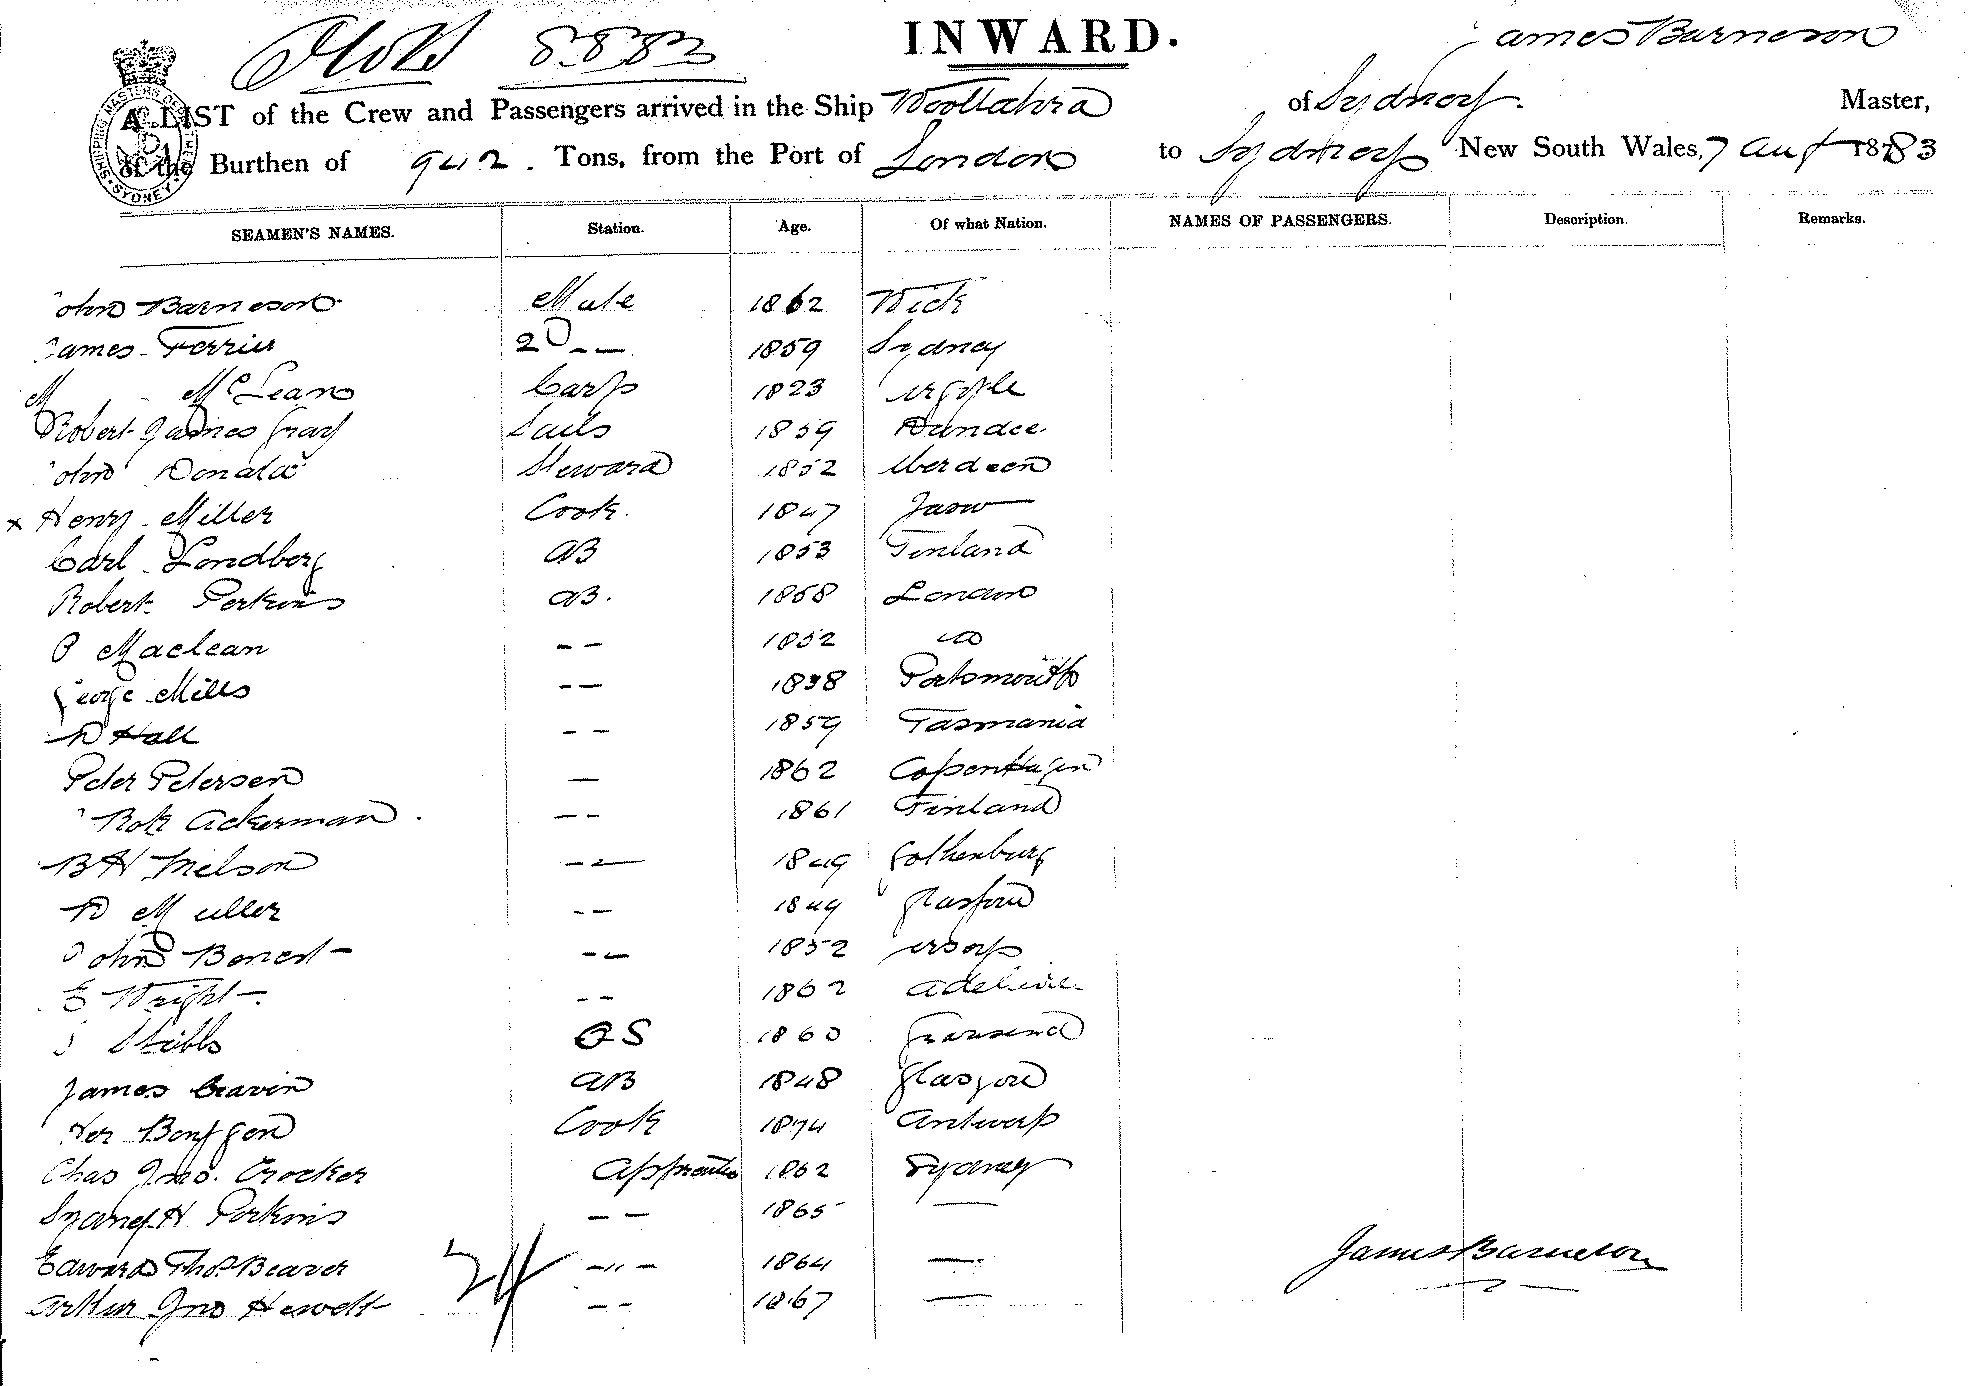 8883 INWARD. James Barneson
A LIST of the Crew and Passengers arrived in the Ship Woollahra of Sydney Master,
of the Burthen of 942 Tons, from the Port of London to Sydney New South Wales, 7 Aug 1883
SHIPPING MASTER'S OFFICE SYDNEY
SEAMEN'S NAMES. Station. Age. Of what Nation. NAMES OF PASSENGERS. Description. Remarks.
John Barneson Mate 1862 Wick
James Ferrier 2D -- 1859 Sydney
M McLean Carp 1823 Argyle
Robert James Gray Sails 1859 Dundee
John Donald Steward 1852 Aberdeen
x Henry Miller Cook. 1847
Carl Londberg AB 1853 Finland
Robert Perkins AB. 1858 London
P Maclean -- 1852 do
George Mills -- 1838 Portsmouth
D Hall -- 1859 Tasmania
Peter Petersen -- 1862 Copenhagen
Ackerman -- 1861 Finland
B H Nielson -- 1849 Gothenburg
D Muller -- 1849 Glasgow
John -- 1852
E Wright -- 1862 Adelaide
J Stibbs OS 1860 Gravesend
James Cravin AB 1848 Glasgow
Cook 1874 Antwerp
Chas Jno. Crocker Apprentice 1862 Sydney
Sydney H Perkins -- 1865 —
Edward Thos Beaver -"- 1864 —
James Barneson
24
Arthur Jno Hewett -- 1867 —